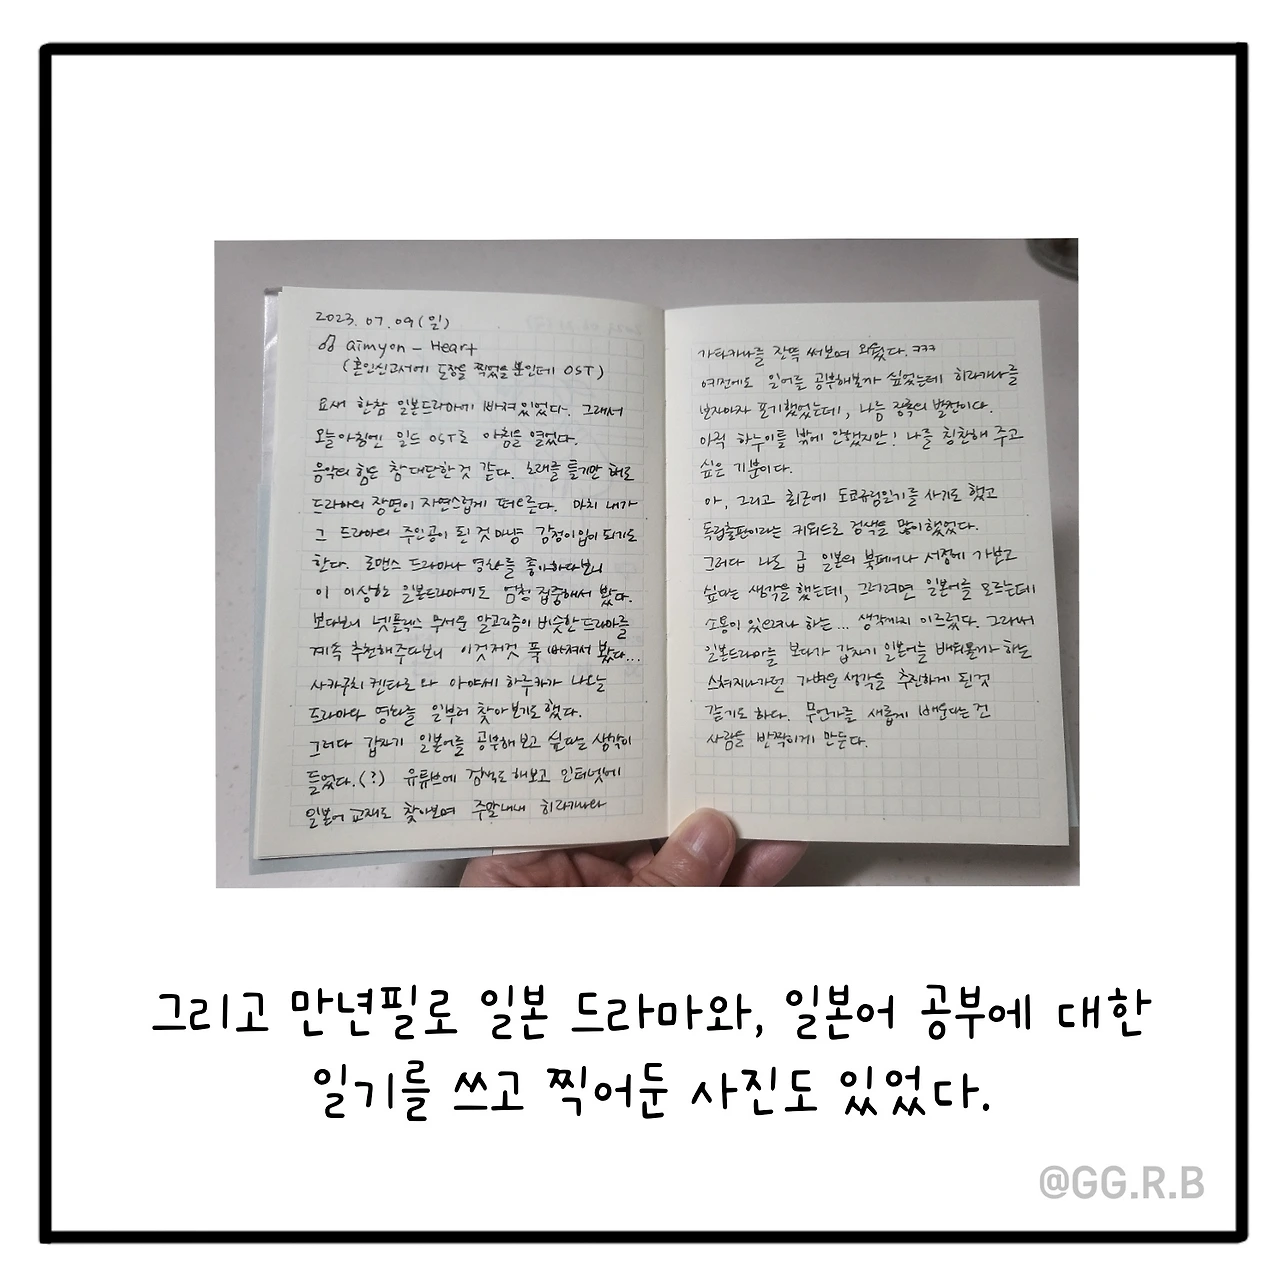 2023. 07. 09 (일)
aimyon - Heart
(혼인신고서에 도장을 찍었을 뿐인데 OST)
요새 한참 일본드라마에 빠져있었다. 그래서
오늘아침엔 일드 OST로 아침을 열었다.
음악의 힘은 참 대단한 것 같다. 노래를 틀기만 해도
드라마의 장면이 자연스럽게 떠오른다. 마치 내가
그 드라마의 주인공이 된 것 마냥 감정이입이 되기도
한다. 로맨스 드라마나 영화를 좋아하다보니
이 이상한 일본드라마에도 엄청 집중해서 봤다.
보다보니 넷플릭스 무서운 알고리즘이 비슷한 드라마를
계속 추천해주다보니 이것저것 푹 빠져서 봤다...
사카구치 켄타로와 아야세 하루카가 나오는
드라마와 영화를 일부러 찾아보기도 했다.
그러다 갑자기 일본어를 공부해보고 싶다는 생각이
들었다.(?) 유튜브에 검색도 해보고 인터넷에
일본어 교재도 찾아보며 주말내내 히라가나와
가타카나를 잔뜩 써보며 외웠다. ㅋㅋㅋ
예전에도 일어를 공부해볼까 싶었는데 히라가나를
보자마자 포기했었는데, 나름 장족의 발전이다.
아직 하루이틀 밖에 안했지만! 나를 칭찬해 주고
싶은 기분이다.
아, 그리고 최근에 도쿄규림일기를 사기도 했고
독립출판이라는 키워드로 검색을 많이했었다.
그러다 나도 급 일본의 북페어나 서점에 가보고
싶다는 생각을 했는데, 그러려면 일본어를 모르는데
소통이 있으려나 하는... 생각까지 이르렀다. 그래서
일본드라마를 보다가 갑자기 일본어를 배워볼까 하는
스쳐지나가던 가벼운 생각을 추진하게 된것
같기도 하다. 무언가를 새롭게 배운다는 건
사람을 반짝이게 만든다.
그리고 만년필로 일본 드라마와, 일본어 공부에 대한
일기를 쓰고 찍어둔 사진도 있었다.
@GG.R.B